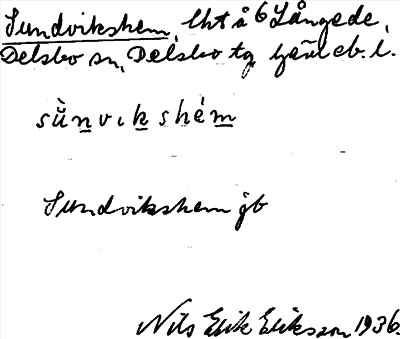 Sundvikshem, lht å 6 Långede,
Delsbo sn, Delsbo tg Gävleb. l.
sùnvikshém
Sundvikshem jb
Nils Erik Eriksson 1936.